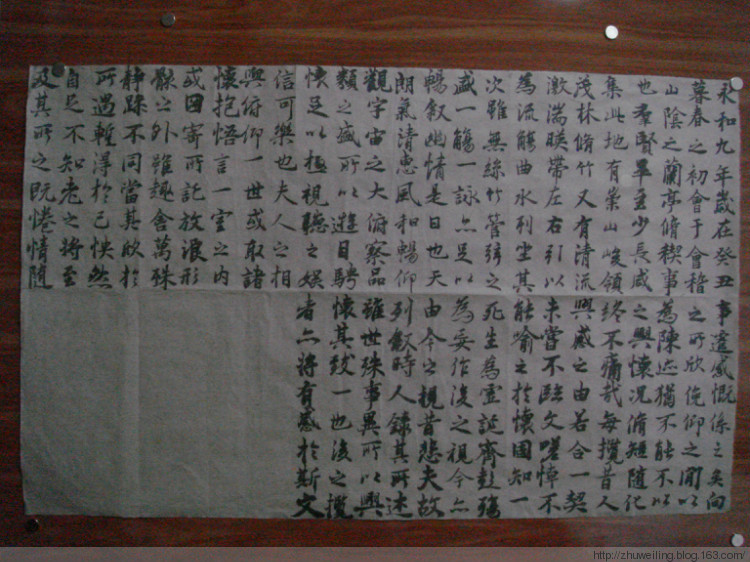 永和九年歲在癸丑
暮春之初會于會稽
山陰之蘭亭脩禊事
也羣賢畢至少長咸
集此地有崇山峻領
茂林脩竹又有清流
激湍暎帶左右引以
為流觴曲水列坐其
次雖無絲竹管弦之
盛一觴一詠亦足以
暢叙幽情是日也天
朗氣清惠風和暢仰
觀宇宙之大俯察品
類之盛所以遊目騁
懷足以極視聽之娛
信可樂也夫人之相
與俯仰一世或取諸
懷抱悟言一室之內
或因寄所託放浪形
骸之外雖趣舍萬殊
靜躁不同當其欣於
所遇暫得於己怏然
自足不知老之將至
及其所之既惓情隨
事遷感慨係之矣向
之所欣俛仰之間以
為陳迹猶不能不以
之興懷況脩短隨化
終不痛哉每攬昔人
興感之由若合一契
未嘗不臨文嗟悼不
能喻之於懷固知一
死生為虛誕齊彭殤
為妄作後之視今亦
由今之視昔悲夫故
列叙時人錄其所述
雖世殊事異所以興
懷其致一也後之攬
者亦將有感於斯文
http://zhuweiling.blog.163.com/